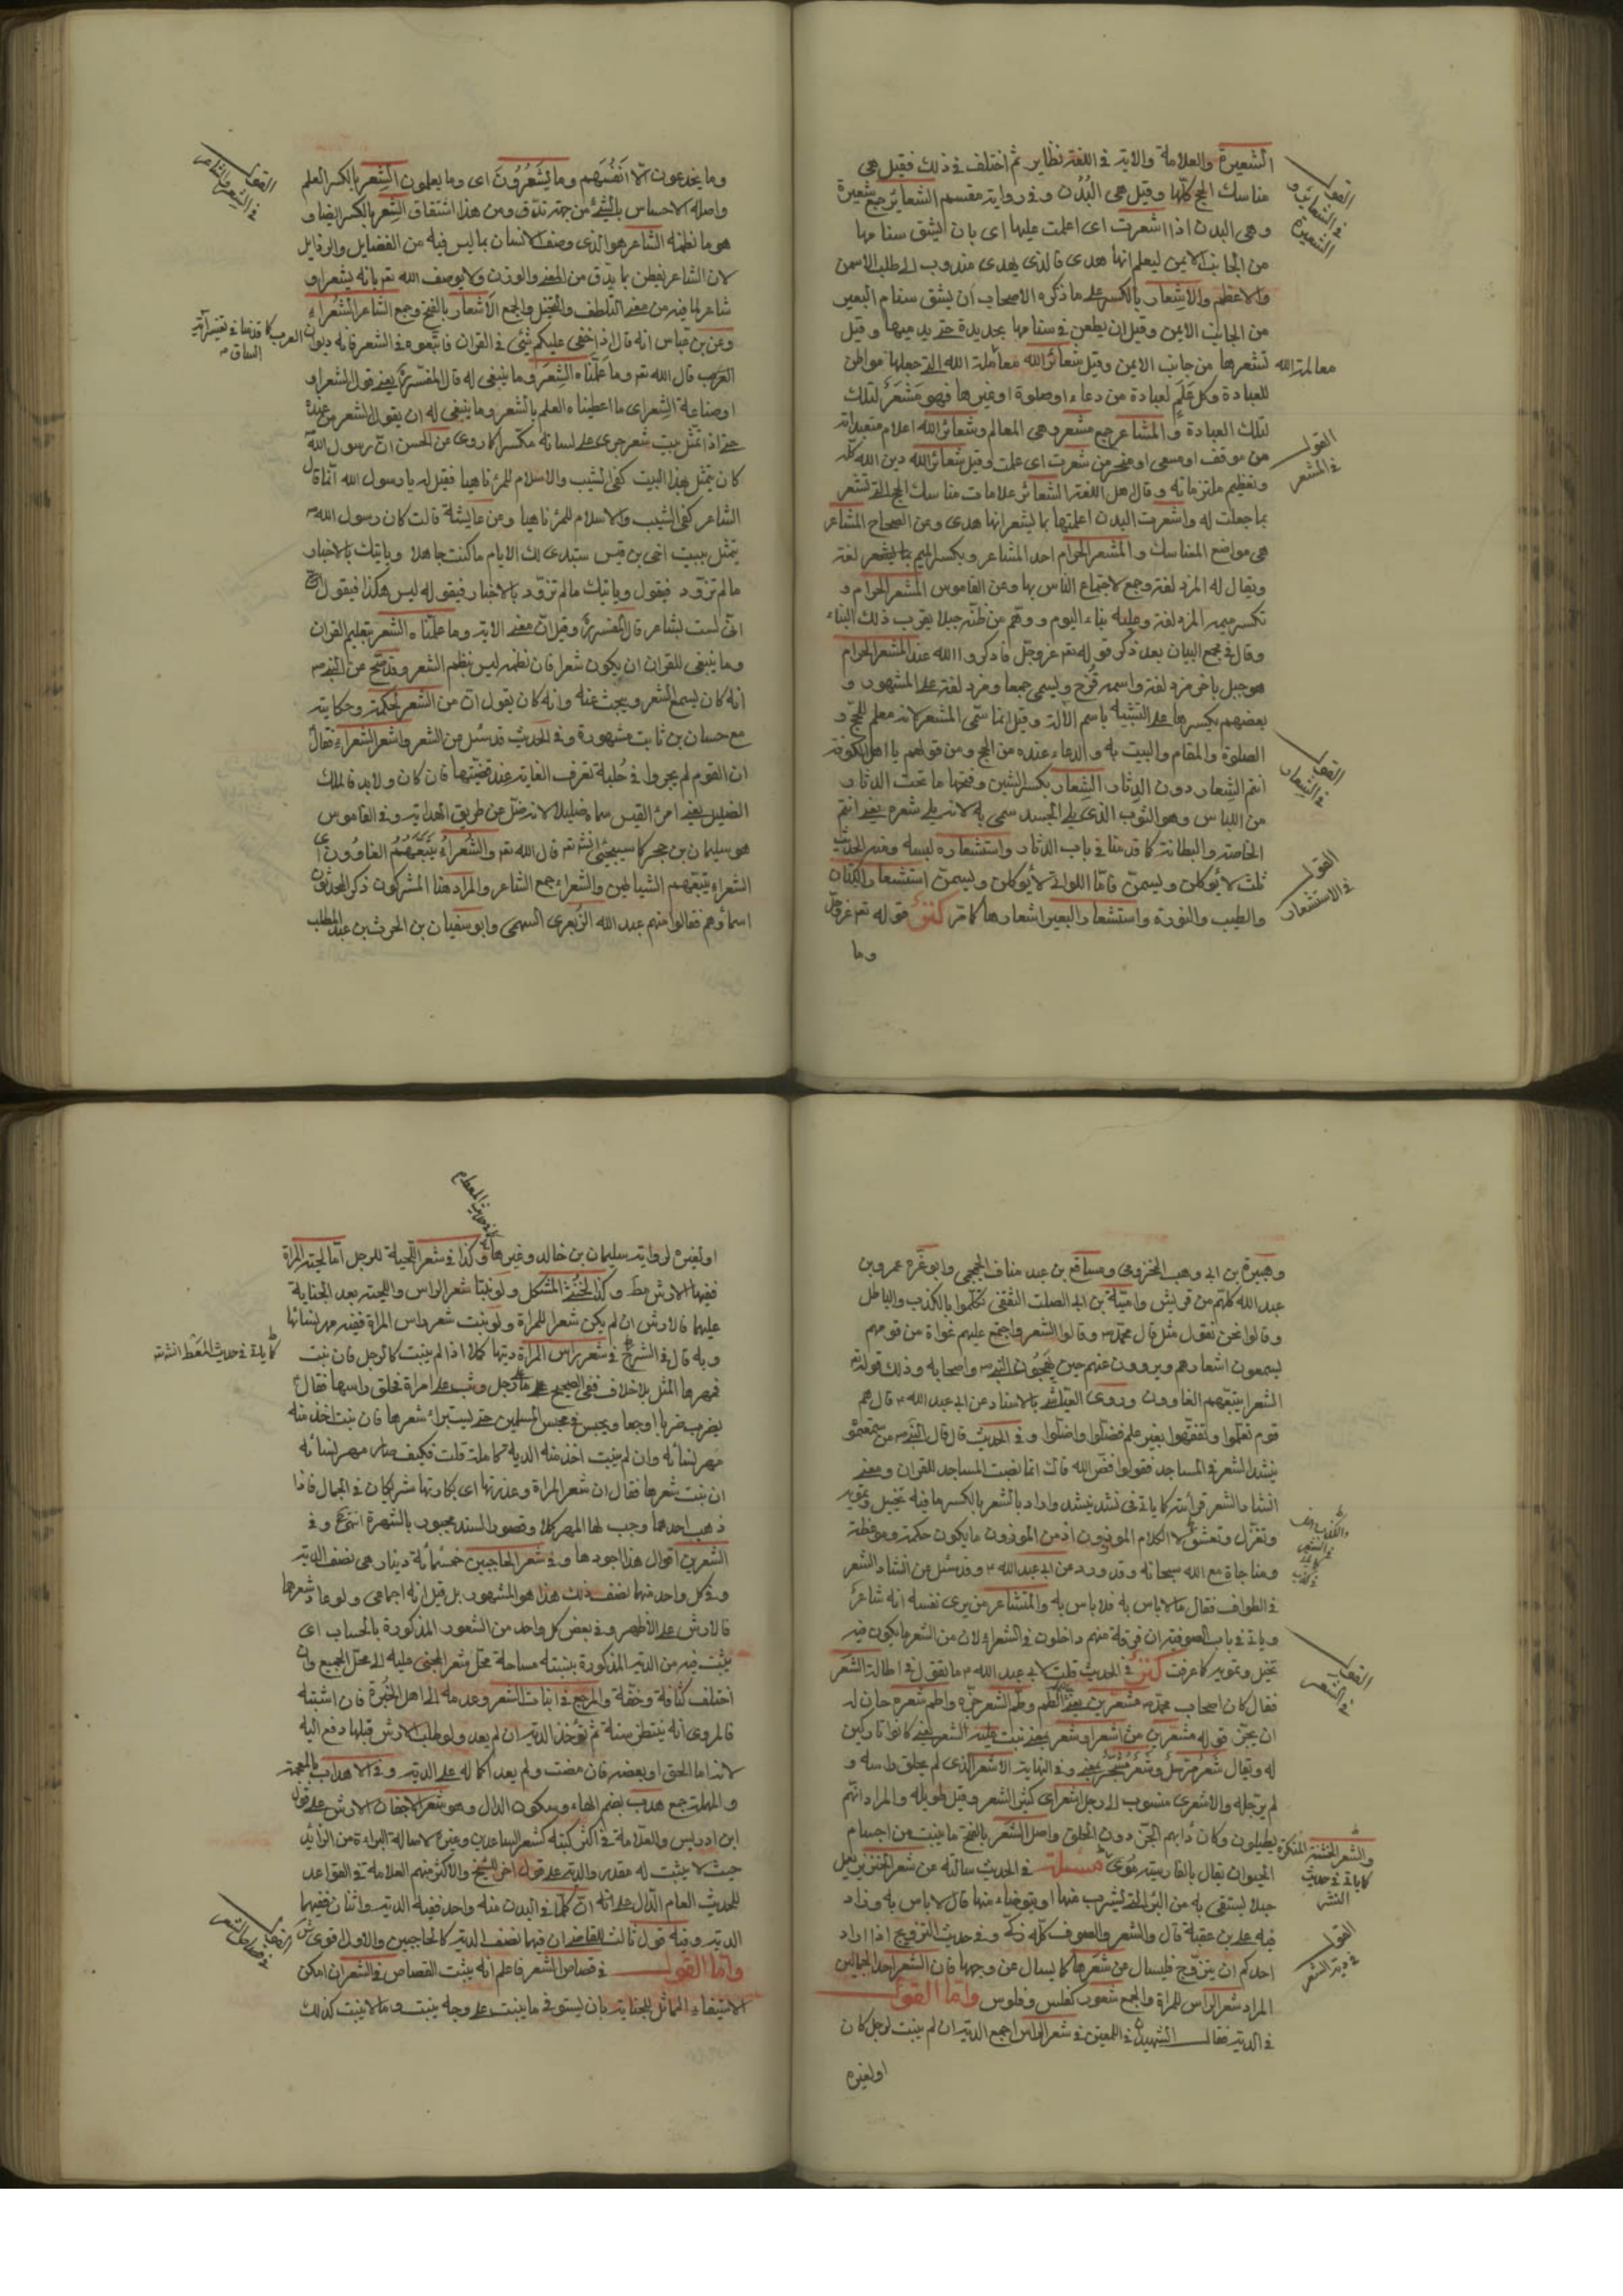 الشعيرة والعلامة والآية في اللغة نظاير ثم اختلف في ذلك فقيل هي
مناسك الحج كلها وقيل هي البُدُن وفي رواية مقسم الشعائر جمع شعيرة
وهي البدن اذا اشعرت اى اعلمت عليها اى بان يشق سنامها
من الجانب الايمن ليعلم انها هدى فالذى يهدى مندوب الى طلب الاسمن
والاعظم والاِشعار بالكسر على ما ذكره الاصحاب ان يشق سنام البعير
من الجانب الايمن وقيل ان يطعن في سنامها بحديدة حتى يدميها وقيل
تشعرها من جانب الايمن وقيل شعائر الله معالم الله التى جعلها مواطن
معالم الله
للعبادة وكل عَلَمٍ لعبادة من دعاء او صلوة او غيرها فهو مَشْعَرٌ لتلك
لتلك العبادة و المشاعر جمع مشعر وهي المعالم وشعائر الله اعلام متعبداته
من موقف او مسعى او منحر من شعرت اى علمت وقيل شعائر الله دين الله كله
وتعظيم ملتزماته و قال اهل اللغة الشعائر علامات مناسك الحج التى تشعر
بما جعلت له واشعرت البدن اعلمتها بما يشعر انها هدى وعن الصحاح المشاعر
هي مواضع المناسك و المشعر الحرام احد المشاعر وبكسر الميم لغة
ويقال له المزدلفة وجمع لاجتماع الناس بها وعن القاموس المشعر الحرام و
تكسر ميمه المزدلفة وعليه بناء اليوم ووهم من ظنه جبلا بقرب ذلك البناء
وقال في مجمع البيان بعد ذكر قوله تعالى عز وجل فاذكروا الله عند المشعر الحرام
هو جبل باخر مزدلفة واسمه قُزح ويسمى جمعا ومزدلفة على المشهور و
بعضهم يكسرها على التشبيه باسم الآلة وقيل انما سمى المشعر لانه معلم للحج و
الصلوة والمقام والمبيت به و الدعاء عنده من الحج ومن قولهم يا اهل الكوفة
انتم الشِعار دون الدِثار الشِعار بكسر الشين وفتحها ما تحت الدثار
من اللباس وهو الثوب الذى يلى الجسد سمى به لانه يلى شعره يعنى انتم
الخاصة والبطانة كما قدمنا في باب الدثار واستشعاره لبسه ومنه الحديث
ثلث لا يؤكلن ويسمن فامّا اللواتى لا يؤكلن ويسمن استشعار الكتان
والطيب والنورة واستشعار البعير اشعارها كما مر كنز قوله تعالى عز وجل
وما
القول في الشعائر و الشعيرة
القول في المشعر
القول في الشِعار
القول في الاستشعار
وما يخدعون الّا اَنفُسَهم وما يَشعُرُونَ اى وما يعلمون الشِعر بالكسر العلم
واصله الاحساس بالشئ من جهة تدق ومن هذا اشتقاق الشِعر بالكسر ايضا و
هو ما نظمه الشاعر هو الذى وصف الانسان بما ليس فيه من الفضايل والرذايل
لان الشاعر يفطن بما يدق من المعنى والوزن ولا يوصف الله تعالى بانه يشعر او
شاعر لما فيه من معنى التلطف والتخيل والجمع الاَشعار بالفتح وجمع الشاعر الشُعَراء
وعن بن عباس انه قال اذا خفى عليكم شئ في القران فابتغوه في الشعر فانه ديوان العرب كما قدمنا في تفسير آية
الساق
العرب قال الله تعالى وما علّمناه الشِعرَ وما ينبغى له قال المفسر يعنى قول الشعراء
او صناعة الشعر اى ما اعطيناه العلم بالشعر وما ينبغى له ان يقول الشعر من عنده
حتى اذا تمثل ببيت شعر جرى على لسانه مكسرا كما روى عن الحسن ان رسول الله
كان يتمثل بهذا البيت كفى الشيب والاسلام للمرء ناهيا فقيل له يا رسول الله انما قال
الشاعر كفى الشيب والاسلام للمرء ناهيا وعن عايشة قالت كان رسول الله
يتمثل ببيت اخى بن قيس ستبدى لك الايام ما كنت جاهلا وياتيك بالاخبار
ما لم تزود فيقول وياتيك ما لم تزود بالاخبار فيقول له ليس هكذا فيقول
انى لست بشاعر قال المفسر وقيل ان معنى الاية وما علمناه الشعر بتعليم القران
وما ينبغى للقران ان يكون شعرا فان نظمه ليس بنظم الشعر وقد صح عن النبى
انه كان يسمع الشعر ويبحث عنه وانه كان يقول ان من الشعر لحكمة وحكايته
مع حسان بن ثابت مشهورة وفي الحديث قد سئل من الشعر واشعر الشعراء فقال
ان القوم لم يجروا في حلبة تعرف الغاية عند قصبتها فان كان ولا بد فالملك
الضليل يعنى امرء القيس سماه ضليلا لانه ضل عن طريق الهداية وفي القاموس
هو سليمان بن حجر كما سيجئ قال الله تعالى والشُعَراءُ يَتَّبِعُهُمُ الغاوُونَ اى
الشعراء يتبعهم الشياطين والشعراء جمع الشاعر والمراد هنا المشركون ذكر المحدثون
اسماؤهم فقالوا منهم عبد الله الزبعرى السهمى وابو سفيان بن الحرث بن عبد المطلب
وهبيرة بن ابى وهب المخزومى ومسافع بن عبد مناف الجمحى وابو عزة عمرو بن
عبد الله كلهم من قريش وامية بن ابى الصلت الثقفى تكلموا بالكذب والباطل
وقالوا نحن نقول مثل قال محمد وقالوا الشعر واجتمع عليهم غواة من قومهم
يسمعون اشعارهم ويروون عنهم حين يهجون النبى واصحابه وذلك قوله تعالى
الشعراء يتبعهم الغاوون وروى العياشى بالاسناد عن ابى عبد الله قال هم
قوم تعلموا وتفقهوا بغير علم فضلوا واضلوا و في الحديث قال قال النبى من سمعتموه
ينشد الشعر في المساجد فقولوا فض الله فاك انما نصبت المساجد للقران ومعنى
انشاد الشعر قرائته كما ياتى في نشد ينشد واراد بالشعر بالكسر ما فيه تخييل وتمويه
وتغزل وتعشق لا الكلام الموزون اذ من الموزون ما يكون حكمة وموعظة
ومناجاة مع الله سبحانه وقد ورد عن ابى عبد الله وقد سئل عن انشاد الشعر
في الطواف فقال ما لا باس به فلا باس به والمتشاعر من يرى نفسه انه شاعر
وياتى في باب الصوفية ان فرقة منهم داخلون في الشعراء لان من الشعر ما يكون فيه
تخيل وتمويه كما عرفت كنز في الحديث قلت لابى عبد الله ما تقول في اطالة الشعر
فقال كان اصحاب محمد مشعرين يعنى الطم وطم الشعر جزه واطم شعره حان له
ان يجز قوله مشعرين من اشعر او شعر بمعنى نبت عليه الشعر يعنى كانوا تاركين
له ويقال شعر مرسل وشعر بمعنى وفي النهاية الاشعر الذى لم يحلق راسه و
لم يرجله والاشعرى منسوب الى رجل اشعر اى كثير الشعر وقيل طويله والمراد انهم
يطيلون وكان دأبهم الجز دون الحلق واصل الشعر بالفتح ما ينبت من اجسام
الحيوان يقال بالفارسية موى مسئلة في الحديث سالته عن شعر الخنزير يعمل
حبلا يستقى به من البئر التى يشرب منها او يتوضاء منها قال لا باس به وزاد
فيه على بن عقبة قال والشعر والصوف كله ذكى وفي حديث التزويج اذا اراد
احدكم ان يتزوج فليسال عن شعرها كما يسال عن وجهها فان الشعر احد الجمالين
المراد شعر الراس للمراة والجمع شعور كفلس وفلوس واما القول
في الدية فقال الشهيدان في اللمعتين في شعر الراس اجمع الدية ان لم ينبت لرجل كان
او لغيره
القول في الشعر
والشعر الخشنة المنكرة
كما ياتى في حديث
النشر
القول في دية الشعر
او لغيره لرواية سليمان بن خالد وغيرها وكذا في شعر اللحية للرجل اما لحية المراة
ففيها الارش مط وكذا الخنثى المشكل ولو نبتا شعر الراس واللحية بعد الجناية
عليهما فالارش ان لم يكن شعرا للمراة ولو نبت شعر راس المراة ففيه مهر نسائها
وبه قال في الشرح في شعر راس المراة ديتها كملا اذا لم ينبت كالرجل فان نبت
كما ياتى في حديث المغط انشاءالله
فمهرها المثل بلا خلاف ففى الصحيح على رجل وثب على امراة فحلق راسها فقال
يضرب ضربا اوجعا ويحبس في محبس المسلمين حتى يستبرأ شعرها فان نبت اخذ منه
مهر نسائه وان لم ينبت اخذ منه الدية كاملة قلت فكيف صار مهر نسائه
ان نبت شعرها فقال ان شعر المراة وعذرتها اى بكارتها شريكان في الجمال فاذا
ذهب احدهما وجب لها المهر كملا وقصور السند مجبور بالشهرة انتهى وفي
الشعرين اقوال هذا اجودها وفي شعر الحاجبين خمسمائة دينار هي نصف الدية
وفي كل واحد منهما نصف ذلك هذا هو المشهور بل قيل انه اجماعى ولو عاد شعرهما
فالارش على الاظهر وفي بعض كل واحد من الشعور المذكورة بالحساب اى
يثبت فيه من الدية المذكورة بنسبته مساحة محل شعر المجنى عليه الى محل الجميع وان
اختلف كثافة وخفة والمرجع في انبات الشعر وعدمه الى اهل الخبرة فان اشتبه
فالمروى انه ينتظر سنة ثم تؤخذ الدية ان لم يعد ولو طلب الارش قبلها دفع اليه
لانه اما الحق او بعضه فان مضت ولم يعد اكمل له على الدية وفي الاهداب بالمعجمة
والمهملة جمع هدب بضم الهاء وسكون الدال وهو شعر الاجفان الارش على قول
ابن ادريس والعلامة في اكثر كتبه كشعر الساعدين وغيره لاصالة البراءة من الزائد
حيث لا يثبت له مقدر والدية على قول اخر للشيخ والاكثر منهم العلامة في القواعد
للحديث العام الدال على انه ان كلما في البدن منه واحد ففيه الدية واثنان ففيهما
الدية وفيه قول ثالث للقاضى ان فيهما نصف الدية كالحاجبين والاول اقوى
واما القول في قصاص الشعر فاعلم انه يثبت القصاص في الشعر ان امكن
الاستيفاء المماثل للجناية بان يستوفى ما ينبت على وجه ينبت وما لا ينبت كذلك